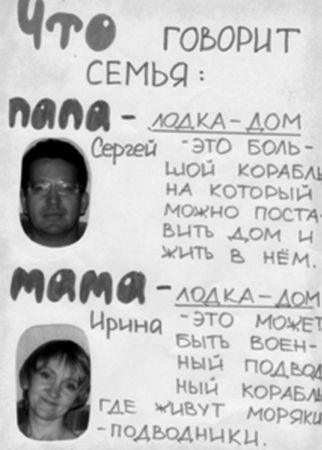 Что ГОВОРИТ
СЕМЬЯ:
папа - ЛОДКА-ДОМ
Сергей - ЭТО БОЛЬ-
ШОЙ КОРАБЛЬ
НА КОТОРЫЙ
МОЖНО ПОСТА-
ВИТЬ ДОМ И
ЖИТЬ В НЁМ.
мама - ЛОДКА-ДОМ
Ирина - ЭТО МОЖЕТ
БЫТЬ ВОЕН-
НЫЙ ПОДВОД
НЫЙ КОРАБЛЬ
ГДЕ ЖИВУТ МОРЯКИ
-ПОДВОДНИКИ.